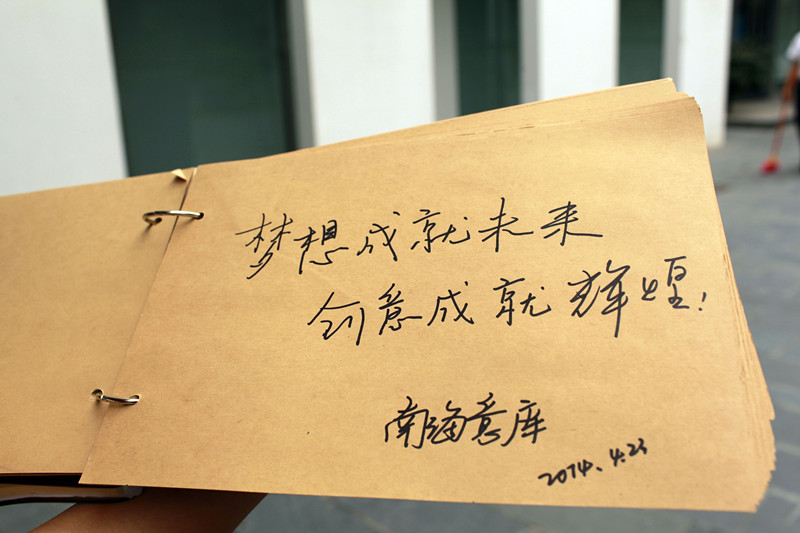 梦想成就未来
创意成就辉煌!
南海意库
2014.4.23